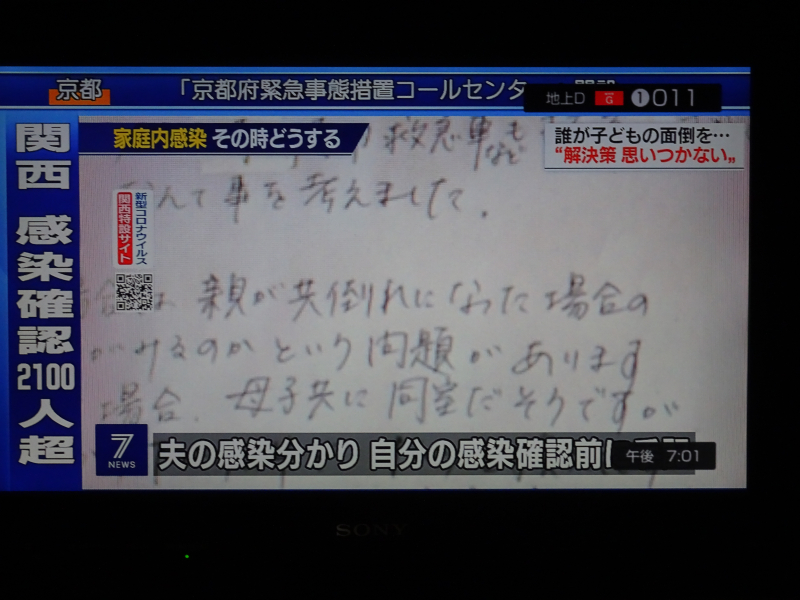 京都
「京都府緊急事態措置コールセンタ
地上D G 1 011
家庭内感染 その時どうする
誰が子どもの面倒を…
"解決策 思いつかない"
関西 感染確認2100人超
新型コロナウイルス
関西特設サイト
救急車も
など
んて事を考えました。
合は 親が共倒れになった場合の
がみるのかという問題があります
場合、母子共に同室だそうですが
7
NEWS
夫の感染分かり 自分の感染確認前に
午後 7:01
SONY